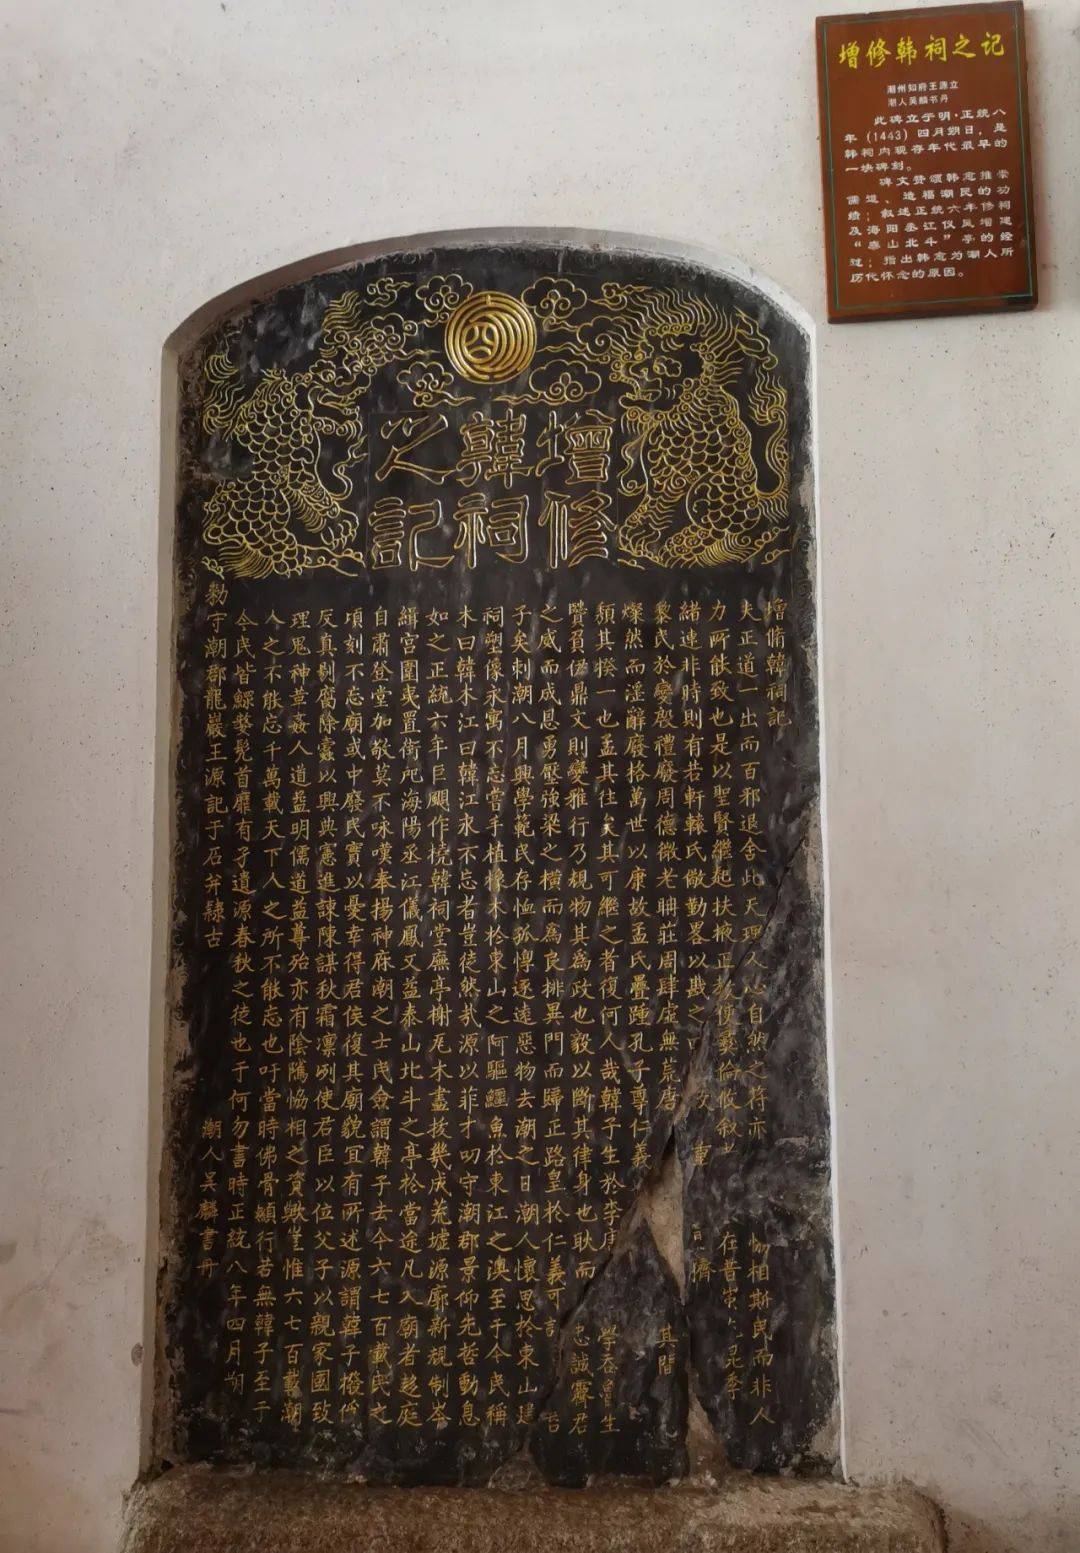 增修韩祠之记
潮州知府王源立
潮人吴麟书丹
此碑立于明·正统八
年（1443）四月朔日，是
韩祠内现存年代最早的
一块碑刻。
碑文赞颂韩愈推崇
儒道、造福潮民的功
绩；叙述正统六年修祠
及海阳丞江仪凤增建
“泰山北斗”亭的经
过；指出韩愈为潮人所
历代怀念的原因。
增修
韓祠
之記
增脩韓祠記
夫正道一出而百邪退舍此天理人心自然之符亦 相斯民而非人
力所能致也是以聖賢繼起扶 正 復彝倫攸敘 在昔
緒連非時則有若軒轅氏 勤畧以戡之
黎民於變殷禮廢周德微老聃莊周肆虛無荒唐
燦然而淫辭廢格萬世以康故孟氏疊踵孔子尊仁義 其階
其揆一也孟其往矣其可繼之者復何人哉韓子生於李唐 學 曾生
負 鼎文則變雅行乃規物其為政也毅以斷其律身也耿而 忠誠齊君
之威而成恩勇壓強梁之橫而為良排異門而歸正路 於仁義可
子矣刺潮八月興學範民存恤孤惸逐遠惡物去潮之日潮人懷思於東山建
祠塑像永寓不忘嘗手植橡木於東山之阿驅鱷魚於東江之澳至于今民稱
木曰韓木江曰韓江永不忘者豈徒然㢤源以菲才叨守潮郡景仰先哲動息
如之正統六年巨颶作橈韓祠堂廡亭榭 木盡拔幾成荒墟源廓新觀制
緝宮圍 置 海陽丞江儀鳳又益泰山北斗之亭於當途凡入廟者趍庭
自肅登堂加敬莫不咏嘆奉揚神庥潮之士民僉謂韓子去今六七百載民之
頃刻不忘廟或中廢民實以憂幸得君侯復其廟貌宜有所述源謂韓子撥僞
反真剔 除蠹以興典憲進諫陳謀秋霜凜冽使君臣以位父子以親家國致
理鬼神 人道益明儒道益尊殆亦有陰隲協相之資歟豈惟六七百載潮
人之不能忘千萬載天下人之所不能忘也吁當時佛骨顓行苟無韓子至于
今民皆鰥婺髡首靡有孑遺源春秋之徒也于何勿書時正統八年四月朔
勅守潮郡龍巖王源記于石并隸古 潮人吳麟書丹